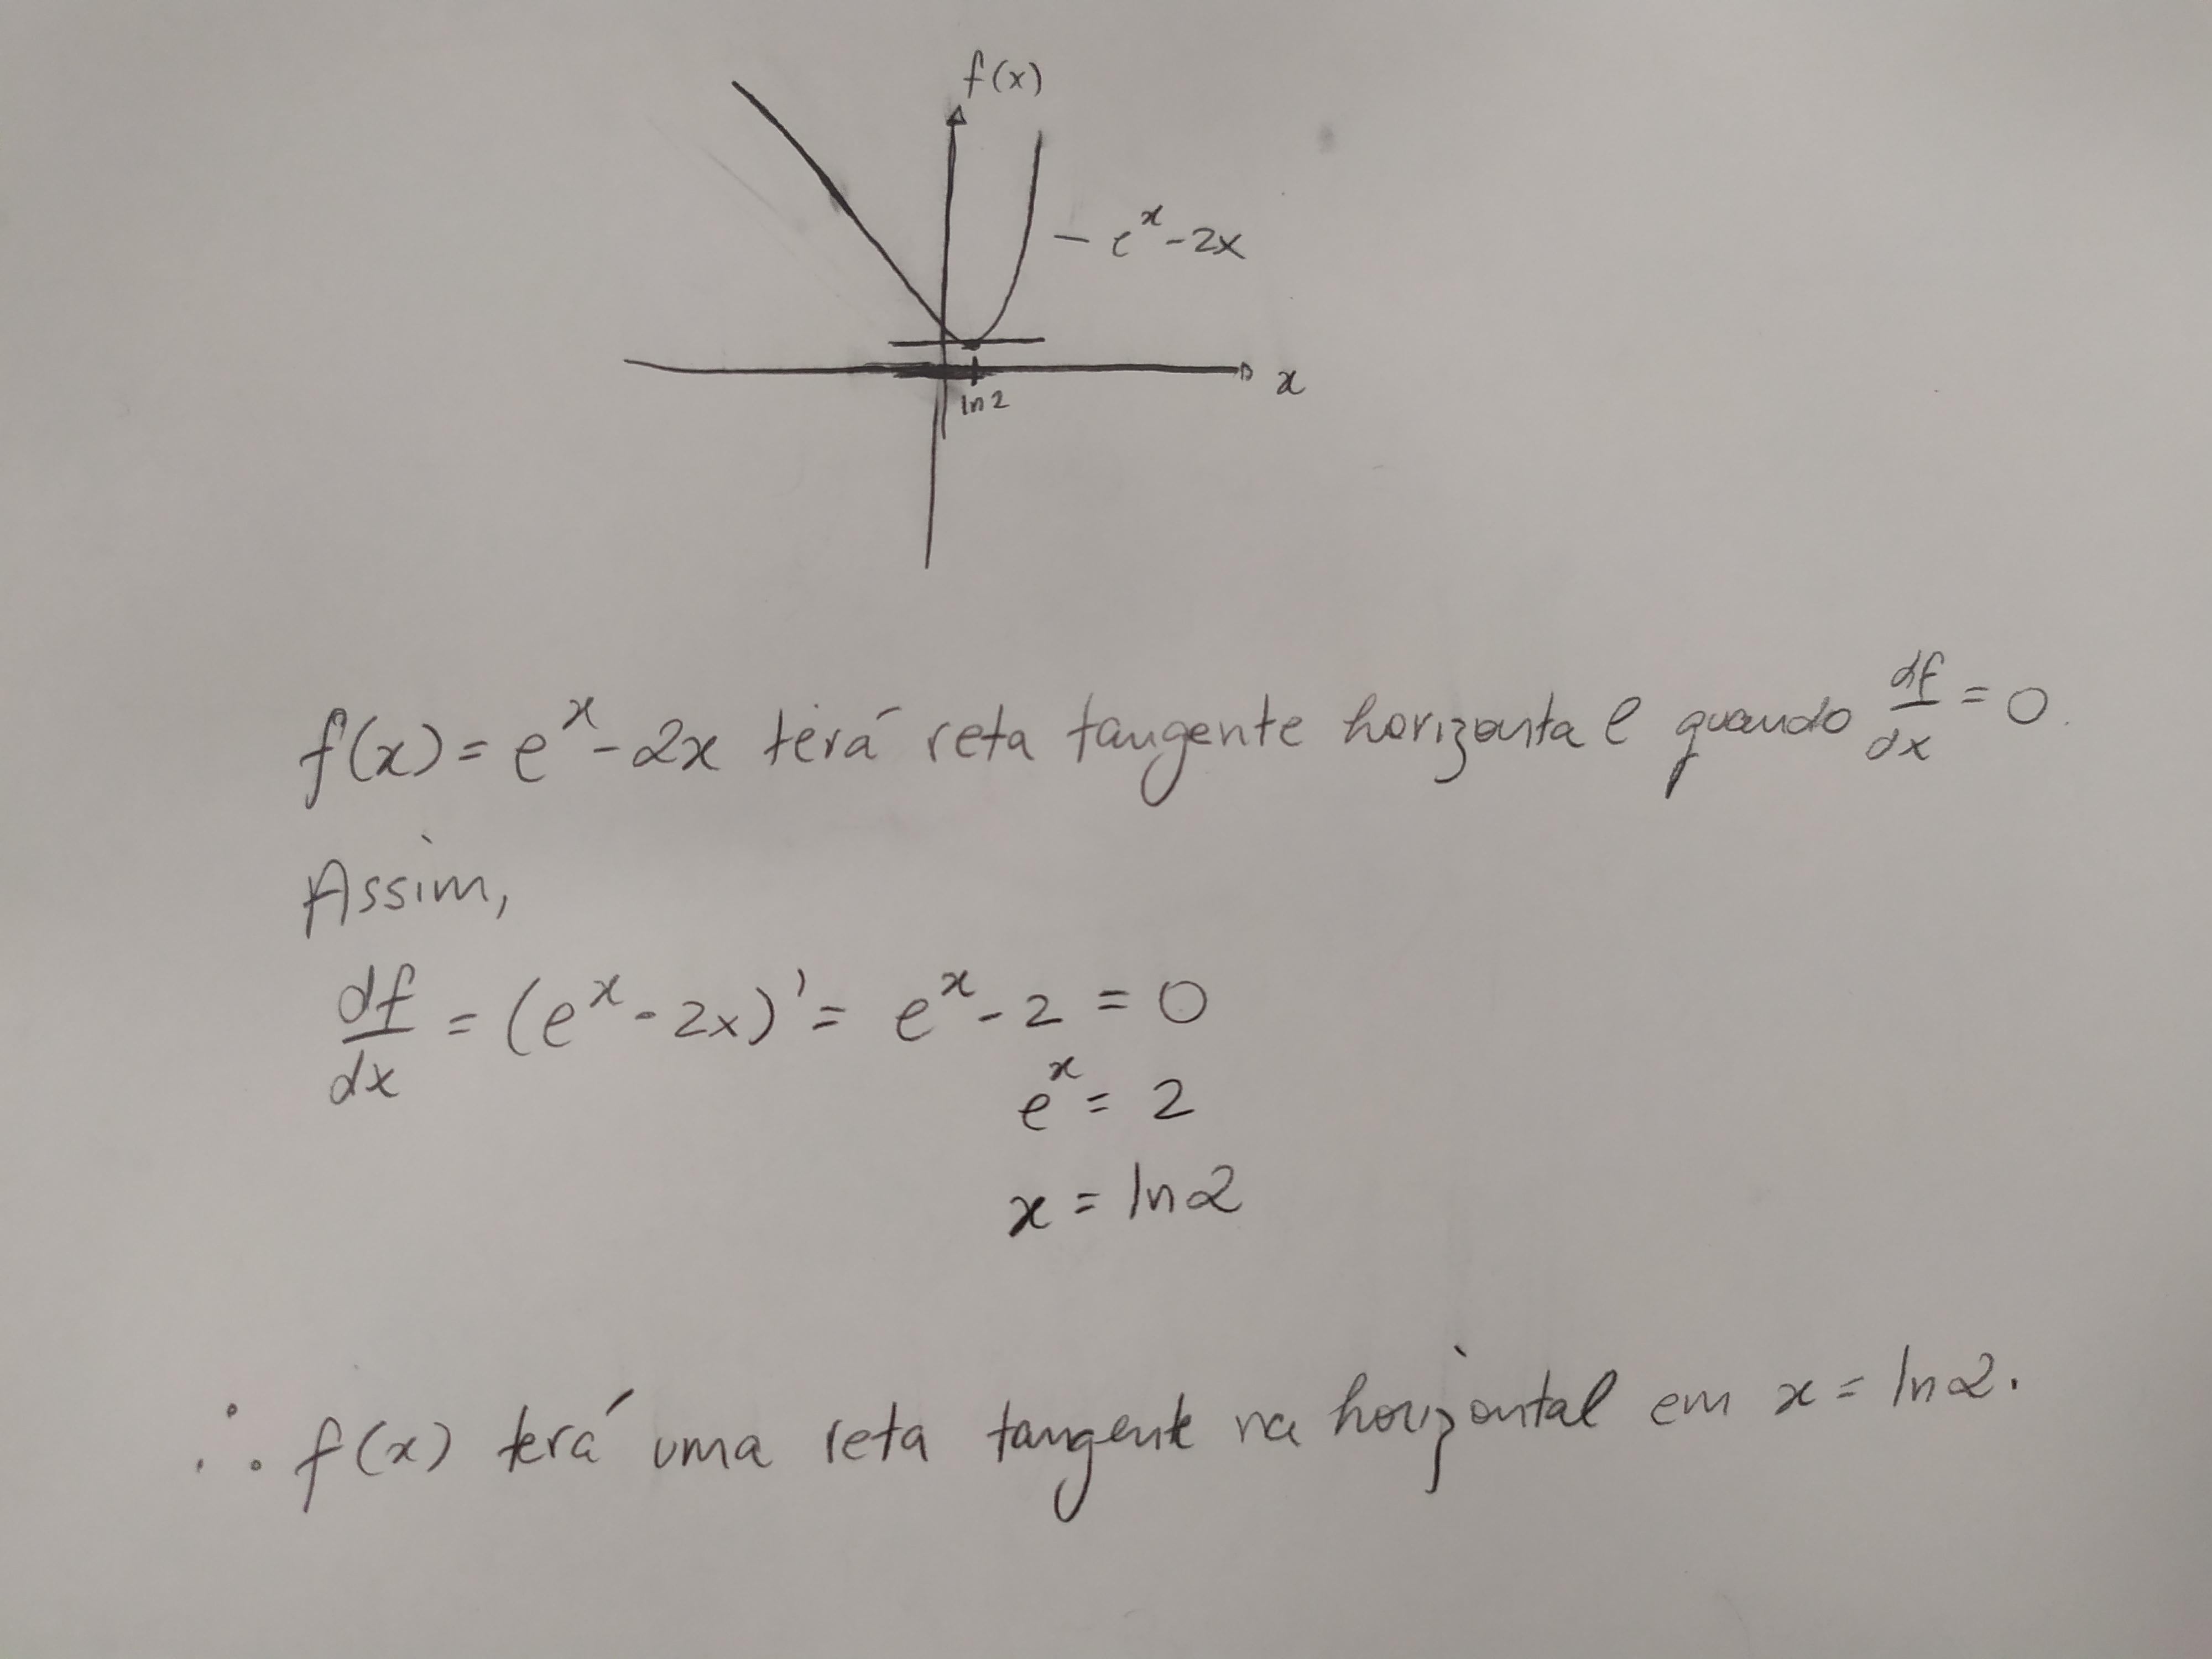 f(x)
— e^x - 2x
x
ln 2
f(x) = e^x - 2x terá reta tangente horizontal quando df/dx = 0.
Assim,
df/dx = (e^x - 2x)' = e^x - 2 = 0
e^x = 2
x = ln 2
∴ f(x) terá uma reta tangente na horizontal em x = ln 2.